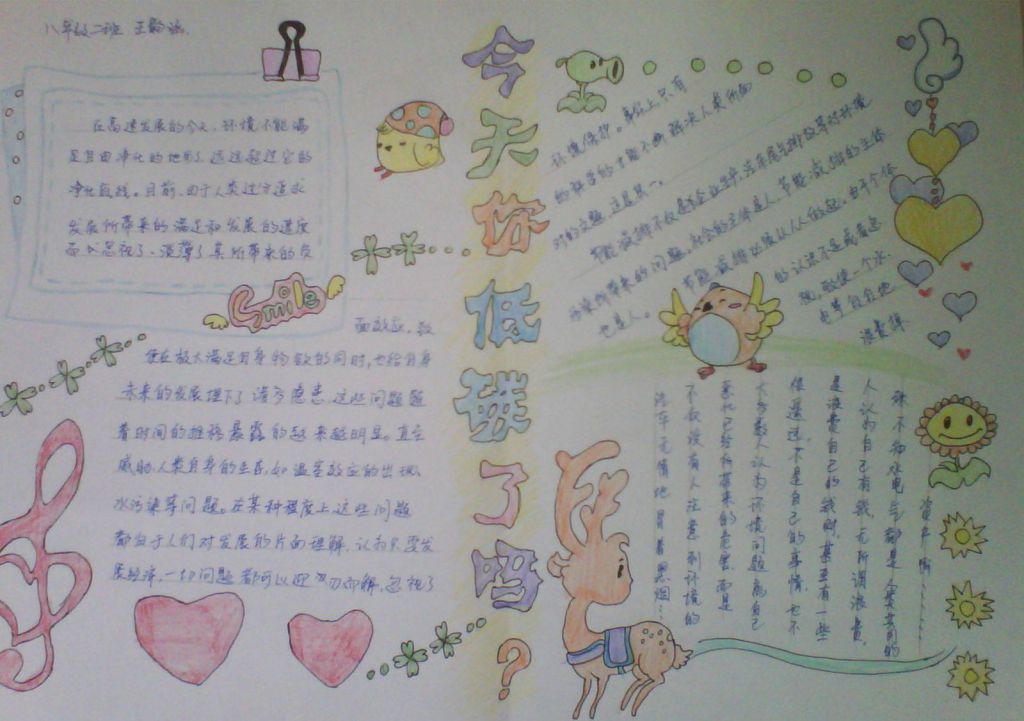 八年级二班 王
今天你低碳了吗?
在高速发展的今天,环境不能满
足其自净化的地步了,远远超过它的
净化直线。目前,由于人类过分追求
发展所带来的满足和发展的速度
而忽视了、淡薄了其所带来的负
Smile
面效应,致
使在极大满足自身物欲的同时,也给自身
未来的发展埋下了诸多隐患,这些问题随
着时间的推移暴露的越来越明显。直至
威胁人类自身的生存,如温室效应的出现、
水污染等问题。在某种程度上这些问题
都由于人们对发展的片面理解,认为只要发
展经济,一切问题都可以迎刃而解,忽视了
环境保护。事实上,只有
的科学的才能不断解决人类所面
对的交题,这是其一。
节能减排不仅是企业生产,汽车尾气排放等对环境
污染所带来的问题。社会的主体是人,节能减排的主体
也是人。节能减排必须从人人做起。由于个体
的认识不足或者忽
视,致使一个水、
电等白白地
浪费掉
殊不知水电气都是实实在在的
人认为自己有钱,无所谓浪费,
是浪费自己的钱财,甚至有一些
很遥远,不是自己的事情,也不
大多数人认为环境问题离自己
恶化已经所带来的危害,而是
不仅没有人注意到环境的
汽车无情地冒着黑烟……